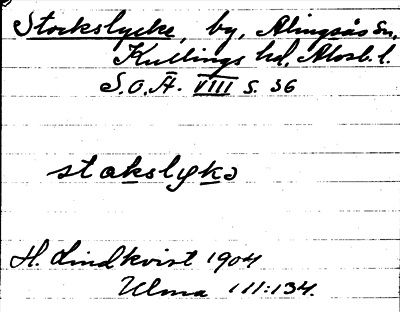 Stockslycke, by, Alingsås sn,
Kullings hd, Älvsb. l.
S.O.Ä. VIII s. 36
stɑkslykə
H. Lindkvist 1904
Ulma 111:134.